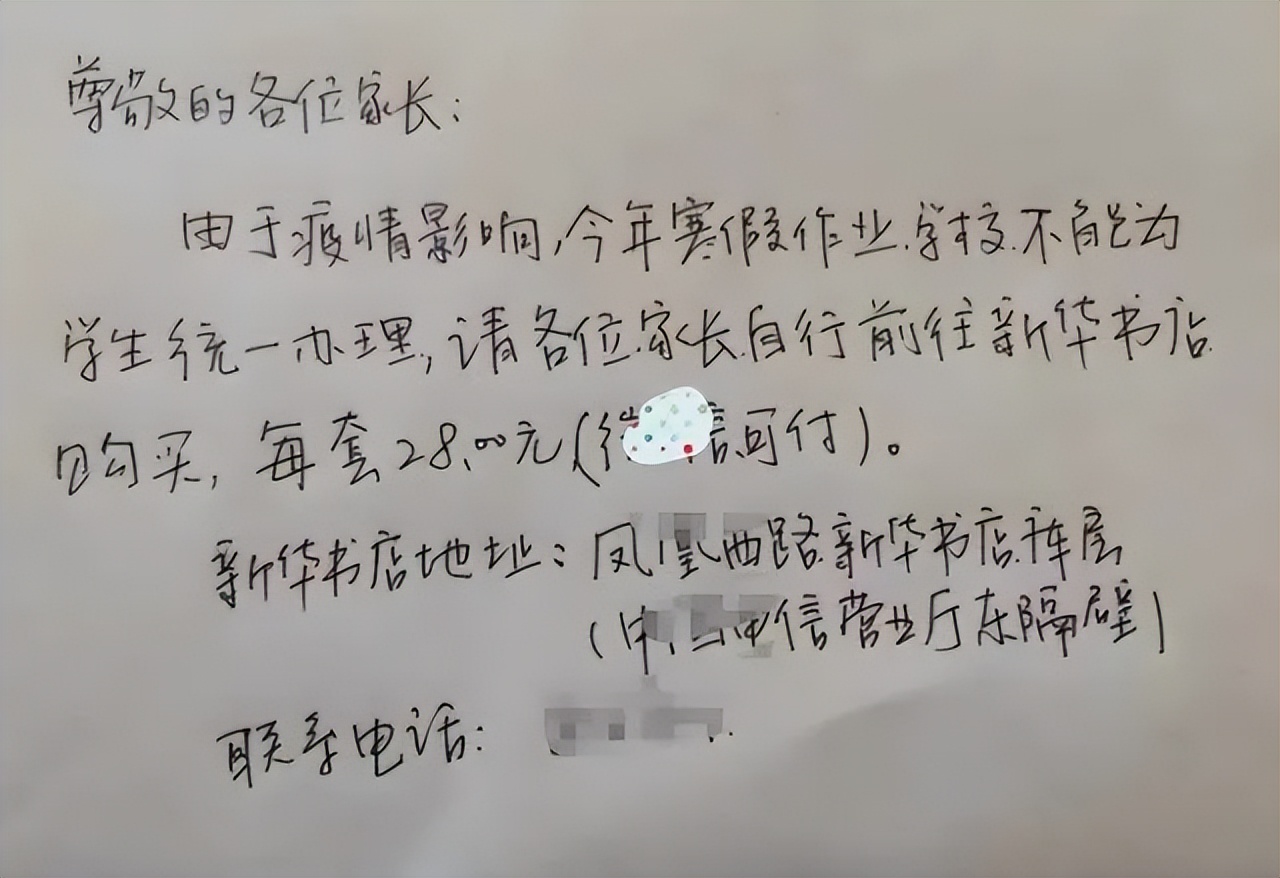 尊敬的各位家长：
由于疫情影响，今年寒假作业，学校不能为
学生统一办理，请各位家长自行前往新华书店
购买，每套28.00元（微信可付）。
新华书店地址：凤凰西路新华书店库房
（中 电信营业厅东隔壁）
联系电话：